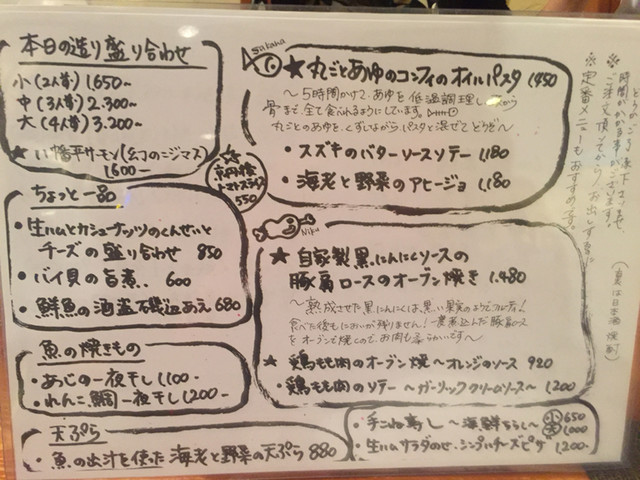 本日の造り盛り合わせ
小(2人前)1,650~
中(3人前)2,300~
大(4人前)3,200~
★八幡平サーモン(幻のニジマス)
1600~
ちょっと一品
・生ハムとカシューナッツのくんせいと
チーズの盛り合わせ 850
・バイ貝の旨煮.. 600
・鮮魚の酒盗磯辺あえ 680
魚の焼きもの
・あじの一夜干し 1,100~
・れんこ鯛一夜干し 1200~
天ぷら
・魚の出汁を使った海老と野菜の天ぷら 880
トマトスライス
550
sakana
★丸ごとあゆのコンフィのオイルパスタ 1,450
~5時間かけて、あゆを低温調理し
骨まで全て食べれるようにしています。
丸ごとのあゆを、くずしながらパスタと混ぜてどうぞ~
・スズキのバターソースソテー 1,180
・海老と野菜のアヒージョ 1,180
Niku
★自家製黒にんにくソースの
豚肩ロースのオーブン焼き 1,480
~熟成させた黒にんにくは、黒い果実のようでフルーティ!
食べた後もにおいが残りません!一度煮込んだ豚肩ロース
をオーブンで焼くので、お肉も柔らかいです~
★鶏もも肉のオーブン焼~オレンジのソース 920
・鶏もも肉のソテー~ガーリッククリームソース~ 1200
・手こね寿し~海鮮ちらし~ 小 650
大 1,000
・生ハムサラダのせ、シンプルチーズピザ 1,200~
※定番メニューもおすすめです。